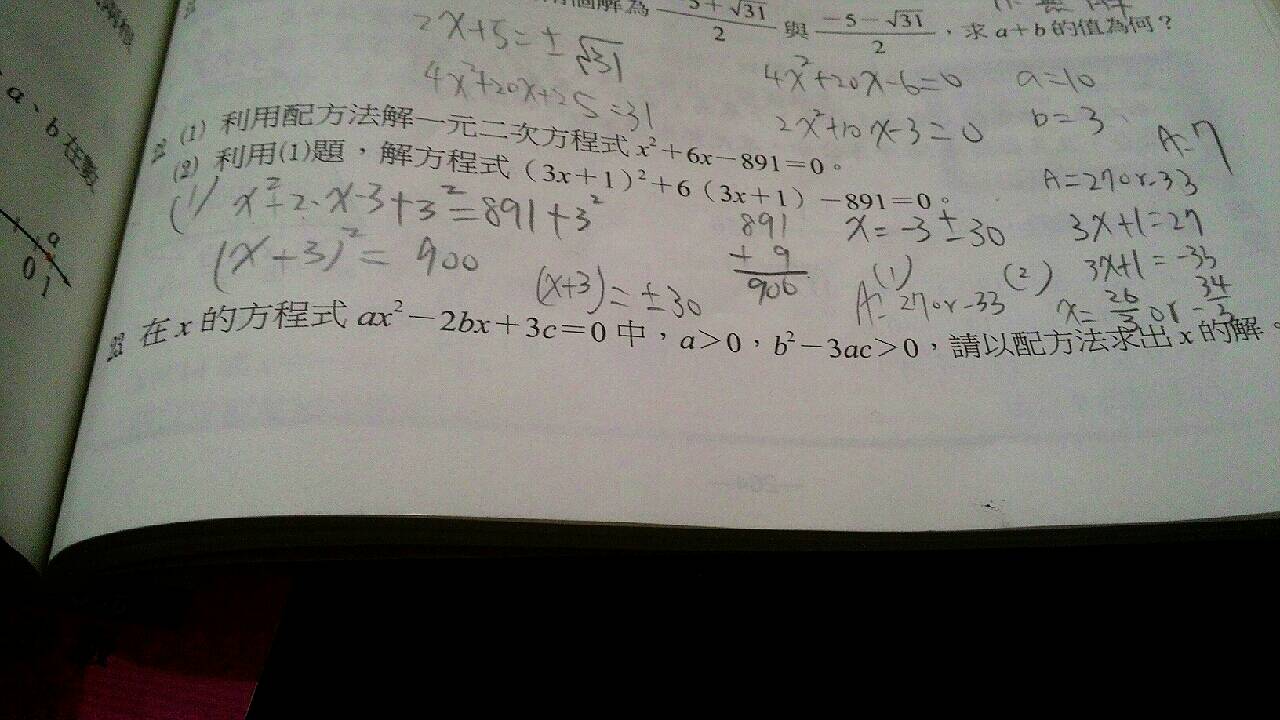 個解為 −5+√31/2 與 −5−√31/2，求 a+b 的值為何？
2x+5=±√31
4x²+20x+25=31
4x²+20x-6=0 a=10
2x²+10x-3=0 b=3
A=7
(1) 利用配方法解一元二次方程式 x²+6x−891=0。
(2) 利用(1)題，解方程式（3x+1）²+6（3x+1）−891=0。
(1) x²+2·x·3+3²=891+3²
(x+3)²=900
(x+3)=±30
891
+ 9
900
x=-3±30
(1)
A=27or-33
A=27or-33
3x+1=27
(2) 3x+1=-33
x=26/3 or -34/3
在 x 的方程式 ax²−2bx+3c=0 中，a>0，b²−3ac>0，請以配方法求出 x 的解。
a、b 在數
a
0 1